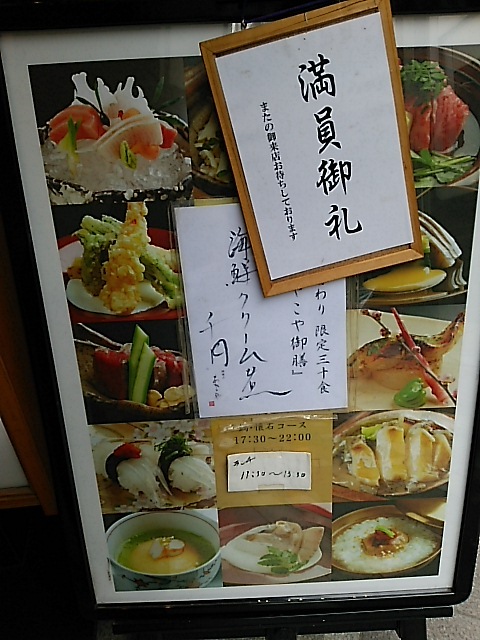 満員御礼
またの御来店お待ちしております
わり 限定三十食
やこや御膳』
海鮮クリーム煮
千円
懐石コース
17:30～22:00
ランチ
11:30～13:30